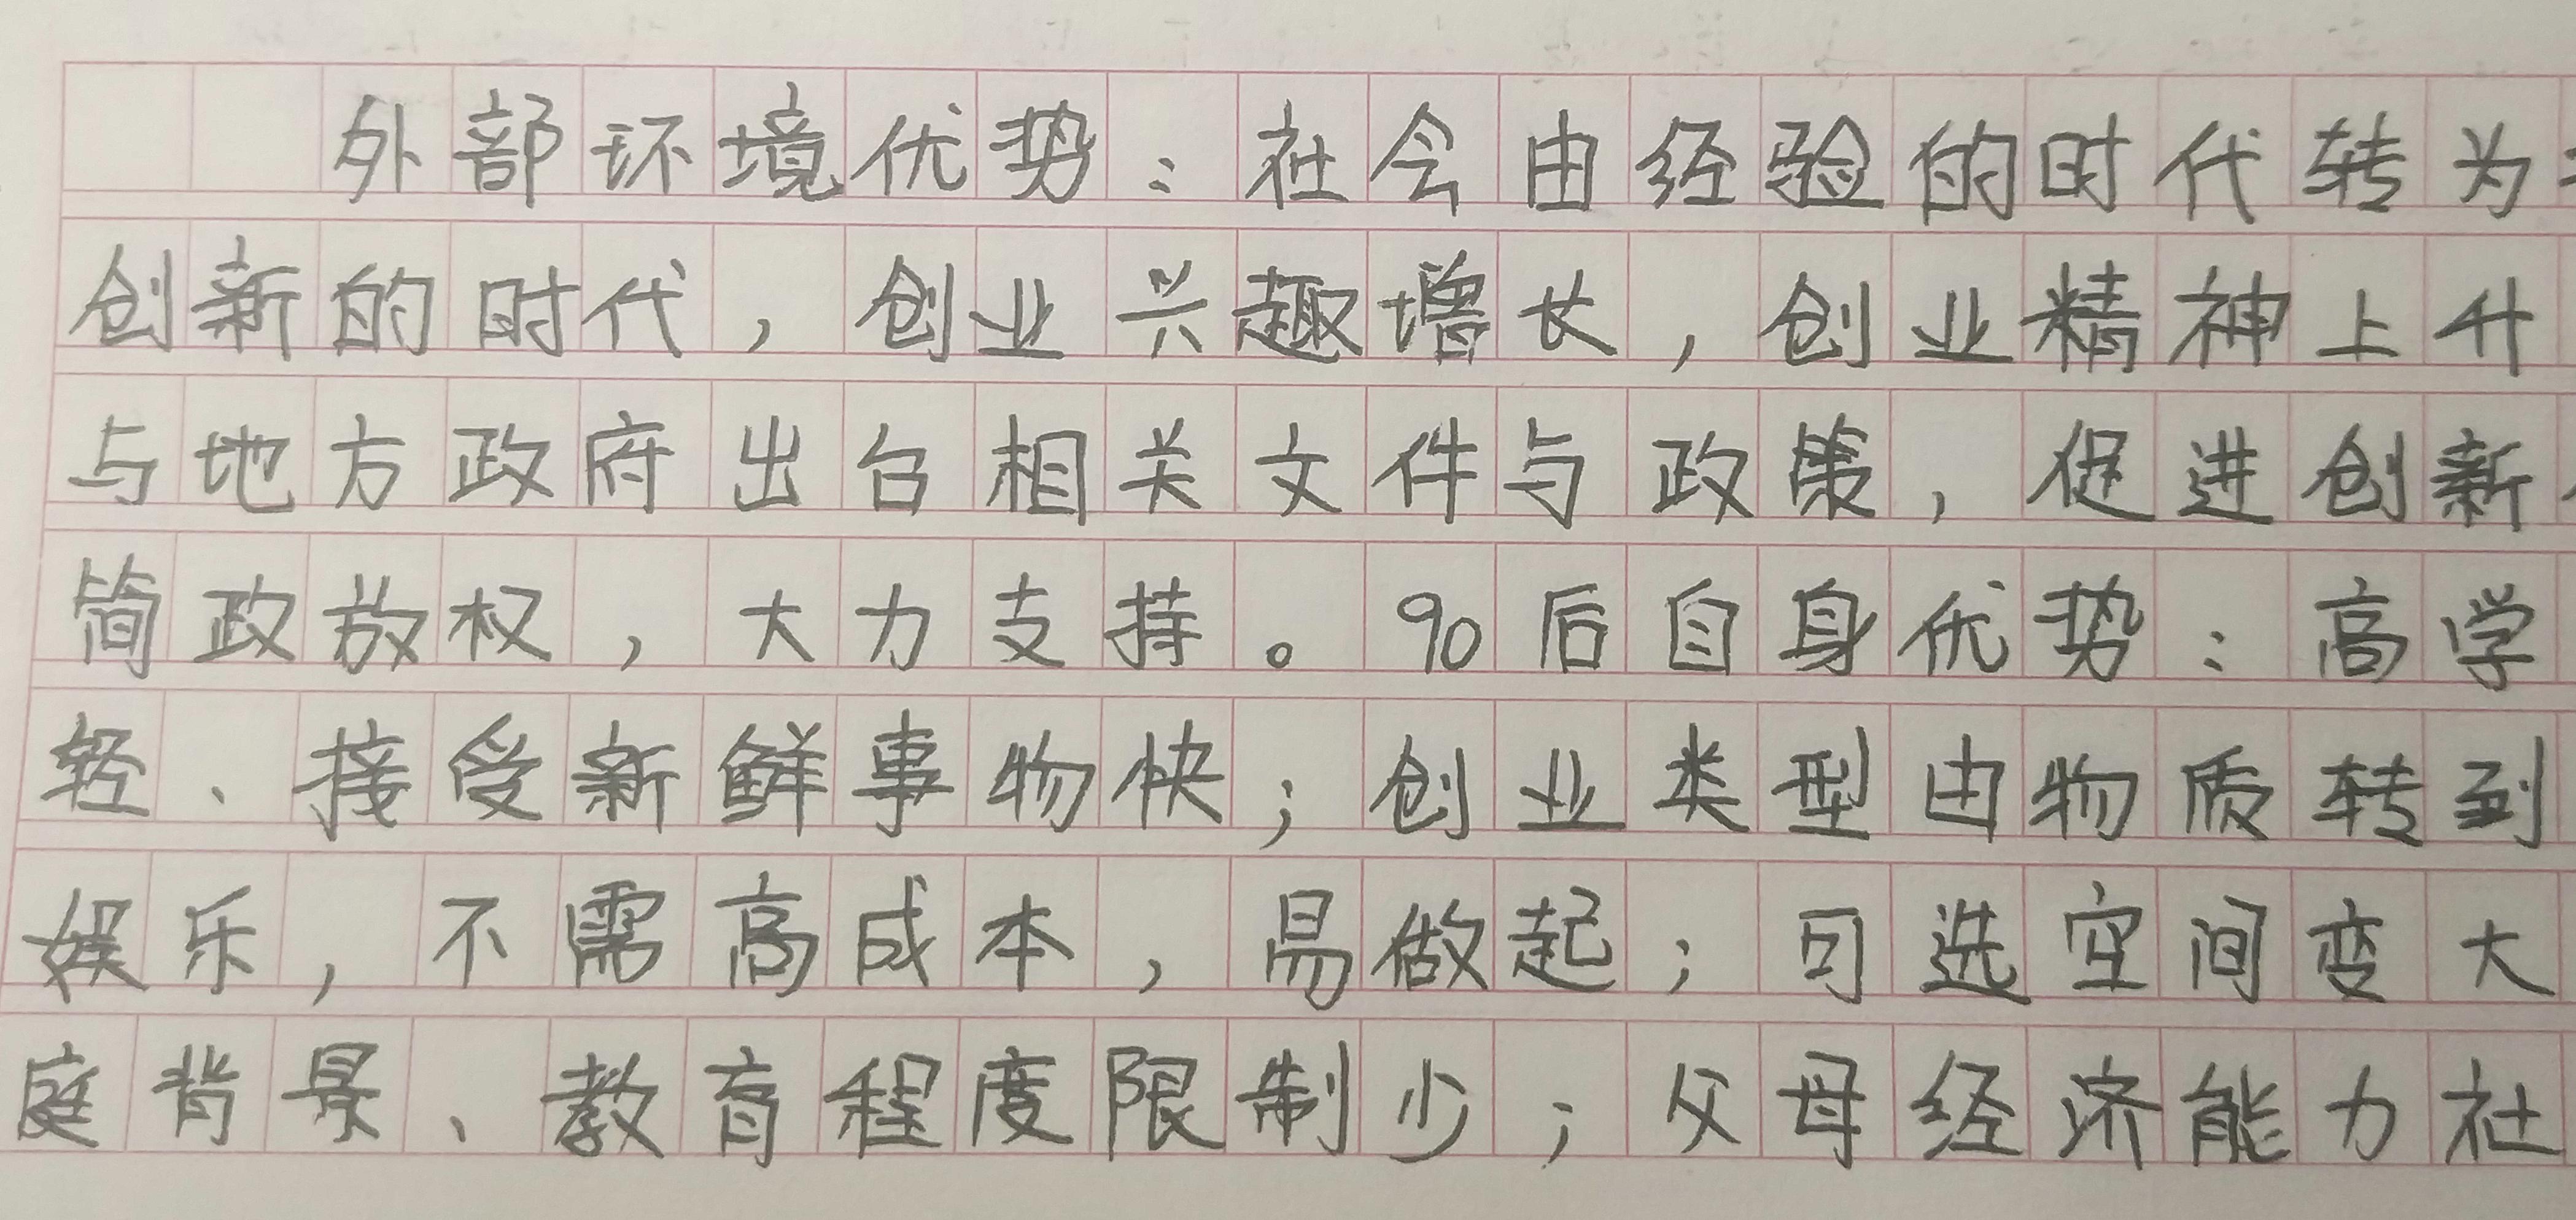 外部环境优势：社会由经验的时代转为
创新的时代，创业兴趣增长，创业精神上升
与地方政府出台相关文件与政策，促进创新
简政放权，大力支持。90后自身优势：高学
轻、接受新鲜事物快；创业类型由物质转到
娱乐，不需高成本，易做起；可选空间变大
庭背景、教育程度限制少；父母经济能力社